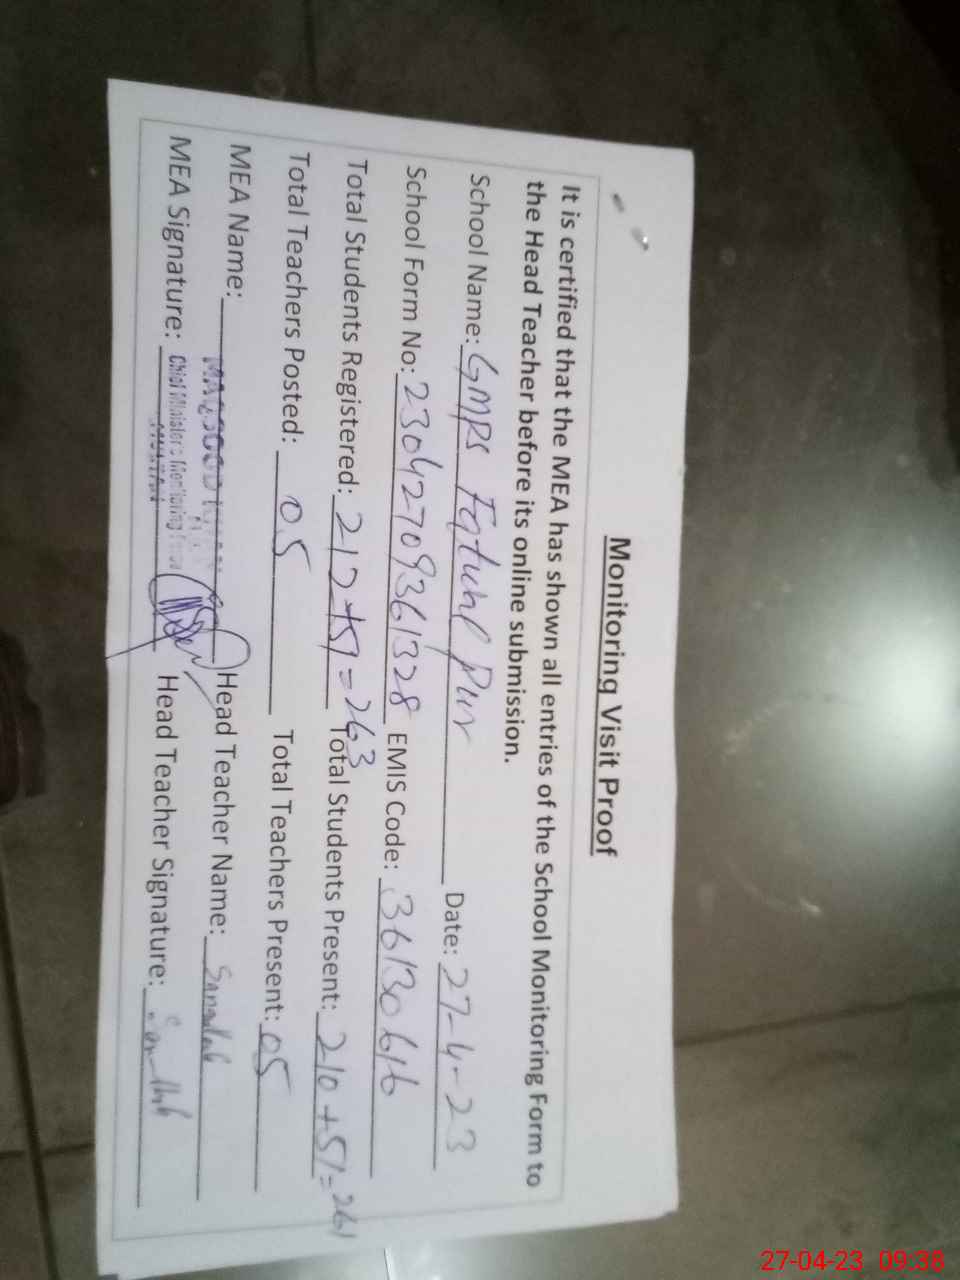 Monitoring Visit Proof
It is certified that the MEA has shown all entries of the School Monitoring Form to
the Head Teacher before its online submission.
School Name: GMPS Fatuhl Pur Date: 27-4-23
School Form No: 23042709361328 EMIS Code: 36130616
Total Students Registered: 212+51=263 Total Students Present: 210+51=261
Total Teachers Posted: 05 Total Teachers Present: 05
MEA Name: Head Teacher Name:
MEA Signature: Chief Minister's Monitoring Force Head Teacher Signature:
27-04-23 09:38